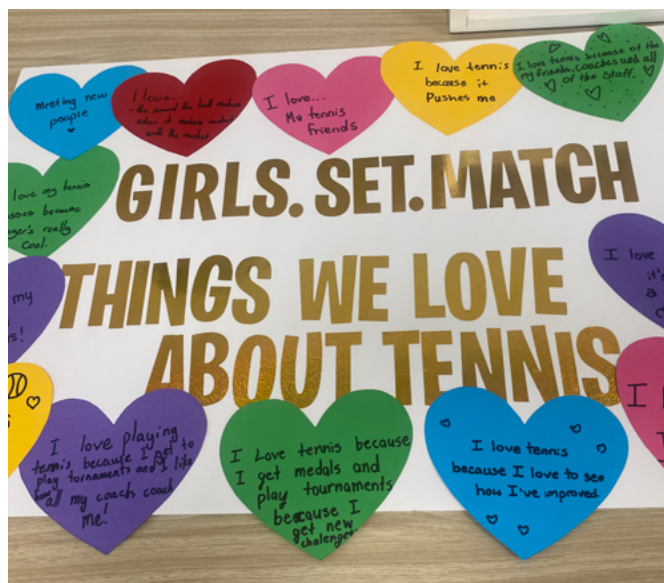 Meeting new
people
I love...
- the sound the ball makes
when it makes contact
with the racket.
I love...
My tennis
friends
I love tennis
because it
Pushes me
I love tennis because of the
my friends, coaches and all
of the staff.
love my tennis
because
really
Cool.
GIRLS. SET. MATCH
my
s!
I love
it's
a
THINGS WE LOVE
ABOUT TENNIS
s
I
I love playing
tennis because I get to
play tornaments and I like
all my coach coach
me!
I Love tennis because
I get medals and
play tournaments
because I
get new
challenges.
I love tennis
because I love to see
how I've improved